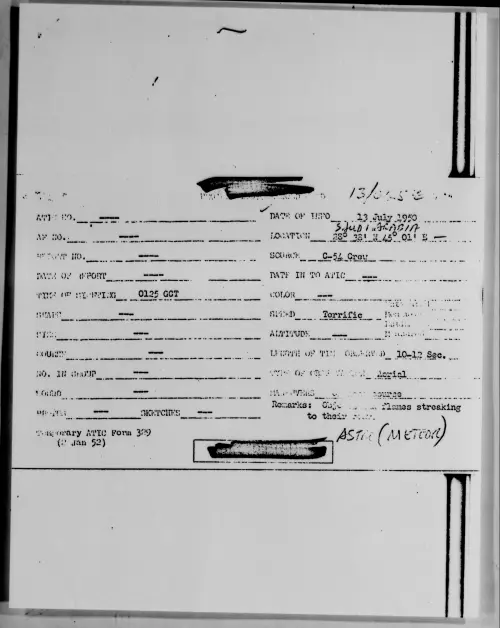 ATIC NO. ---- DATE OF INFO 13 July 1950
SAUDI ARABIA
AF NO. ---- LOCATION 28° 38' N 45° 01' E
REPORT NO. ---- SOURCE C-54 Crew
DATE OF REPORT ---- DATE IN TO ATIC ----
TIME OF SIGHTING 0125 GCT COLOR ----
SHAPE ---- SPEED Terrific
SIZE ---- ALTITUDE ----
COURSE ---- LENGTH OF TIME OBSERVED 10-12 Sec.
NO. IN GROUP ---- TYPE OF Aerial
SOUND ---- MANEUVERS source
Remarks: flames streaking
PHOTOS ---- SKETCHES ---- to their
Temporary ATIC Form 329
(2 Jan 52)
ASTRO (METEOR)